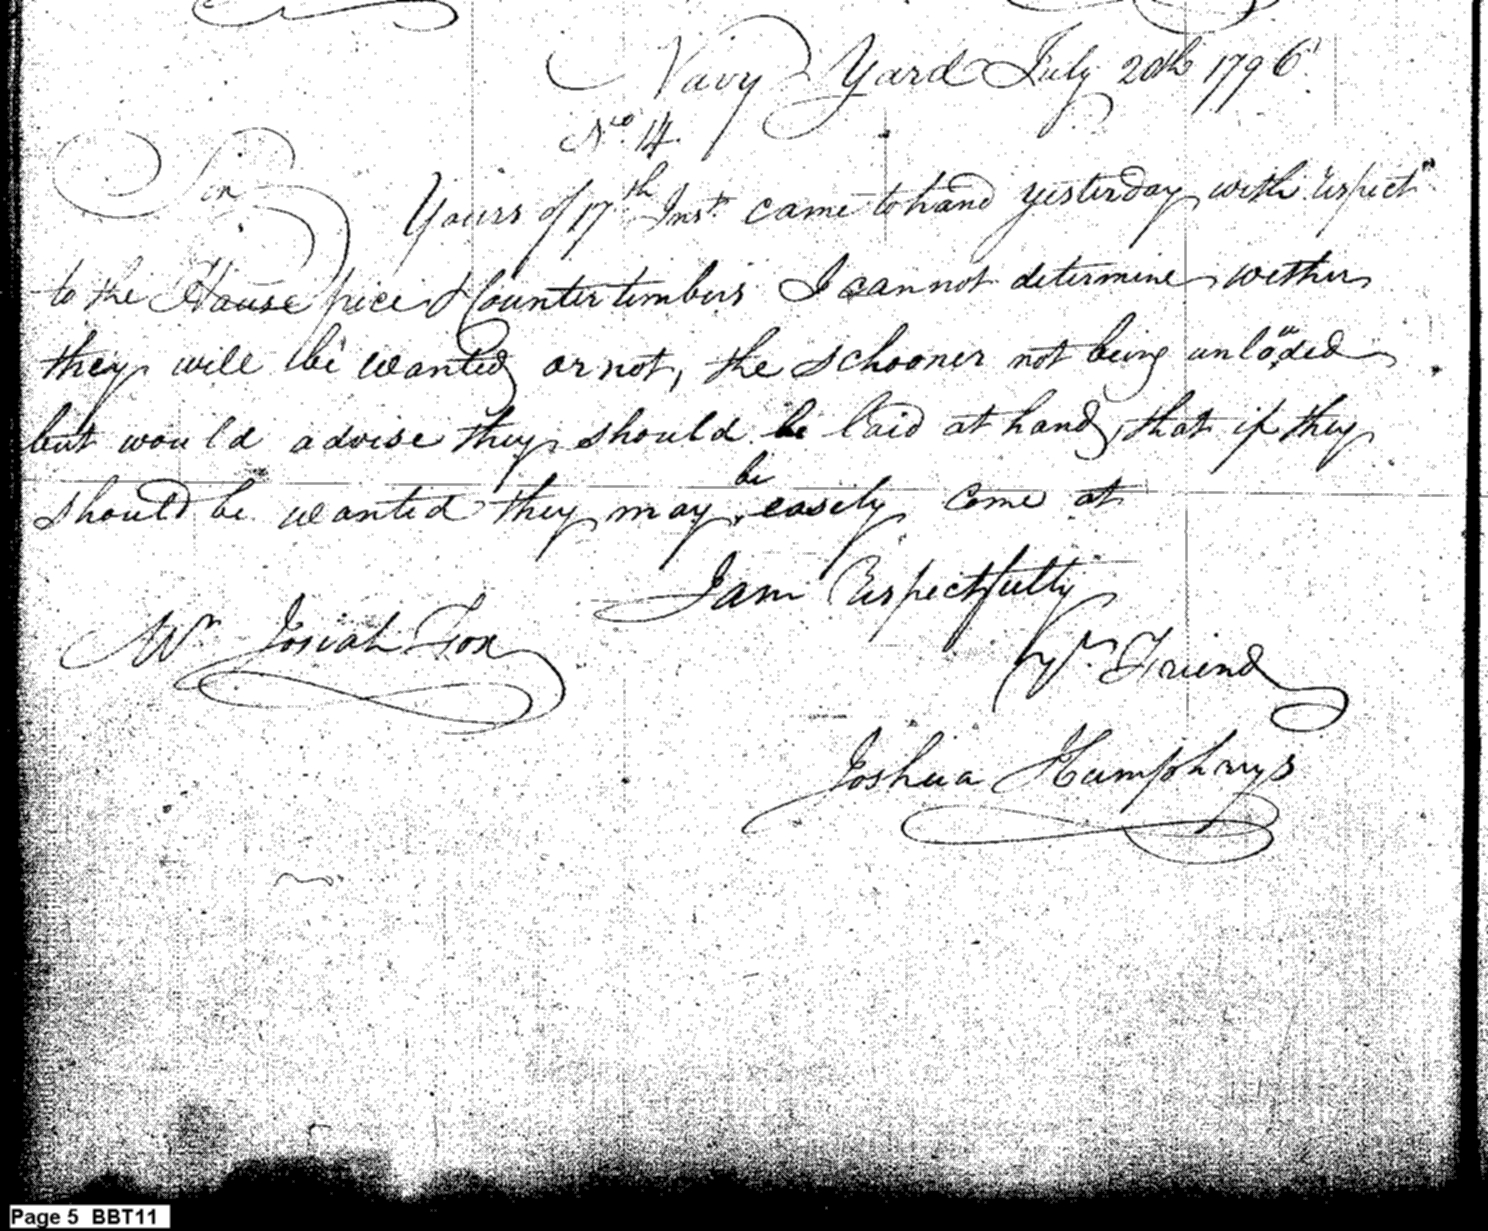 Navy Yard July 20th 1796
No. 14.
Sir
Yours of 17th Inst. came to hand yesterday with respect
to the Hause piece & Counter timbers I cannot determine wether
they will be wanted or not, the schooner not being unloaded
but would advise they should be laid at hand, that if they
should be wanted they may be easily come at
I am Respectfully
Mr Josiah Fox
yr. Friend
Joshua Humphreys
Page 5 BBT11